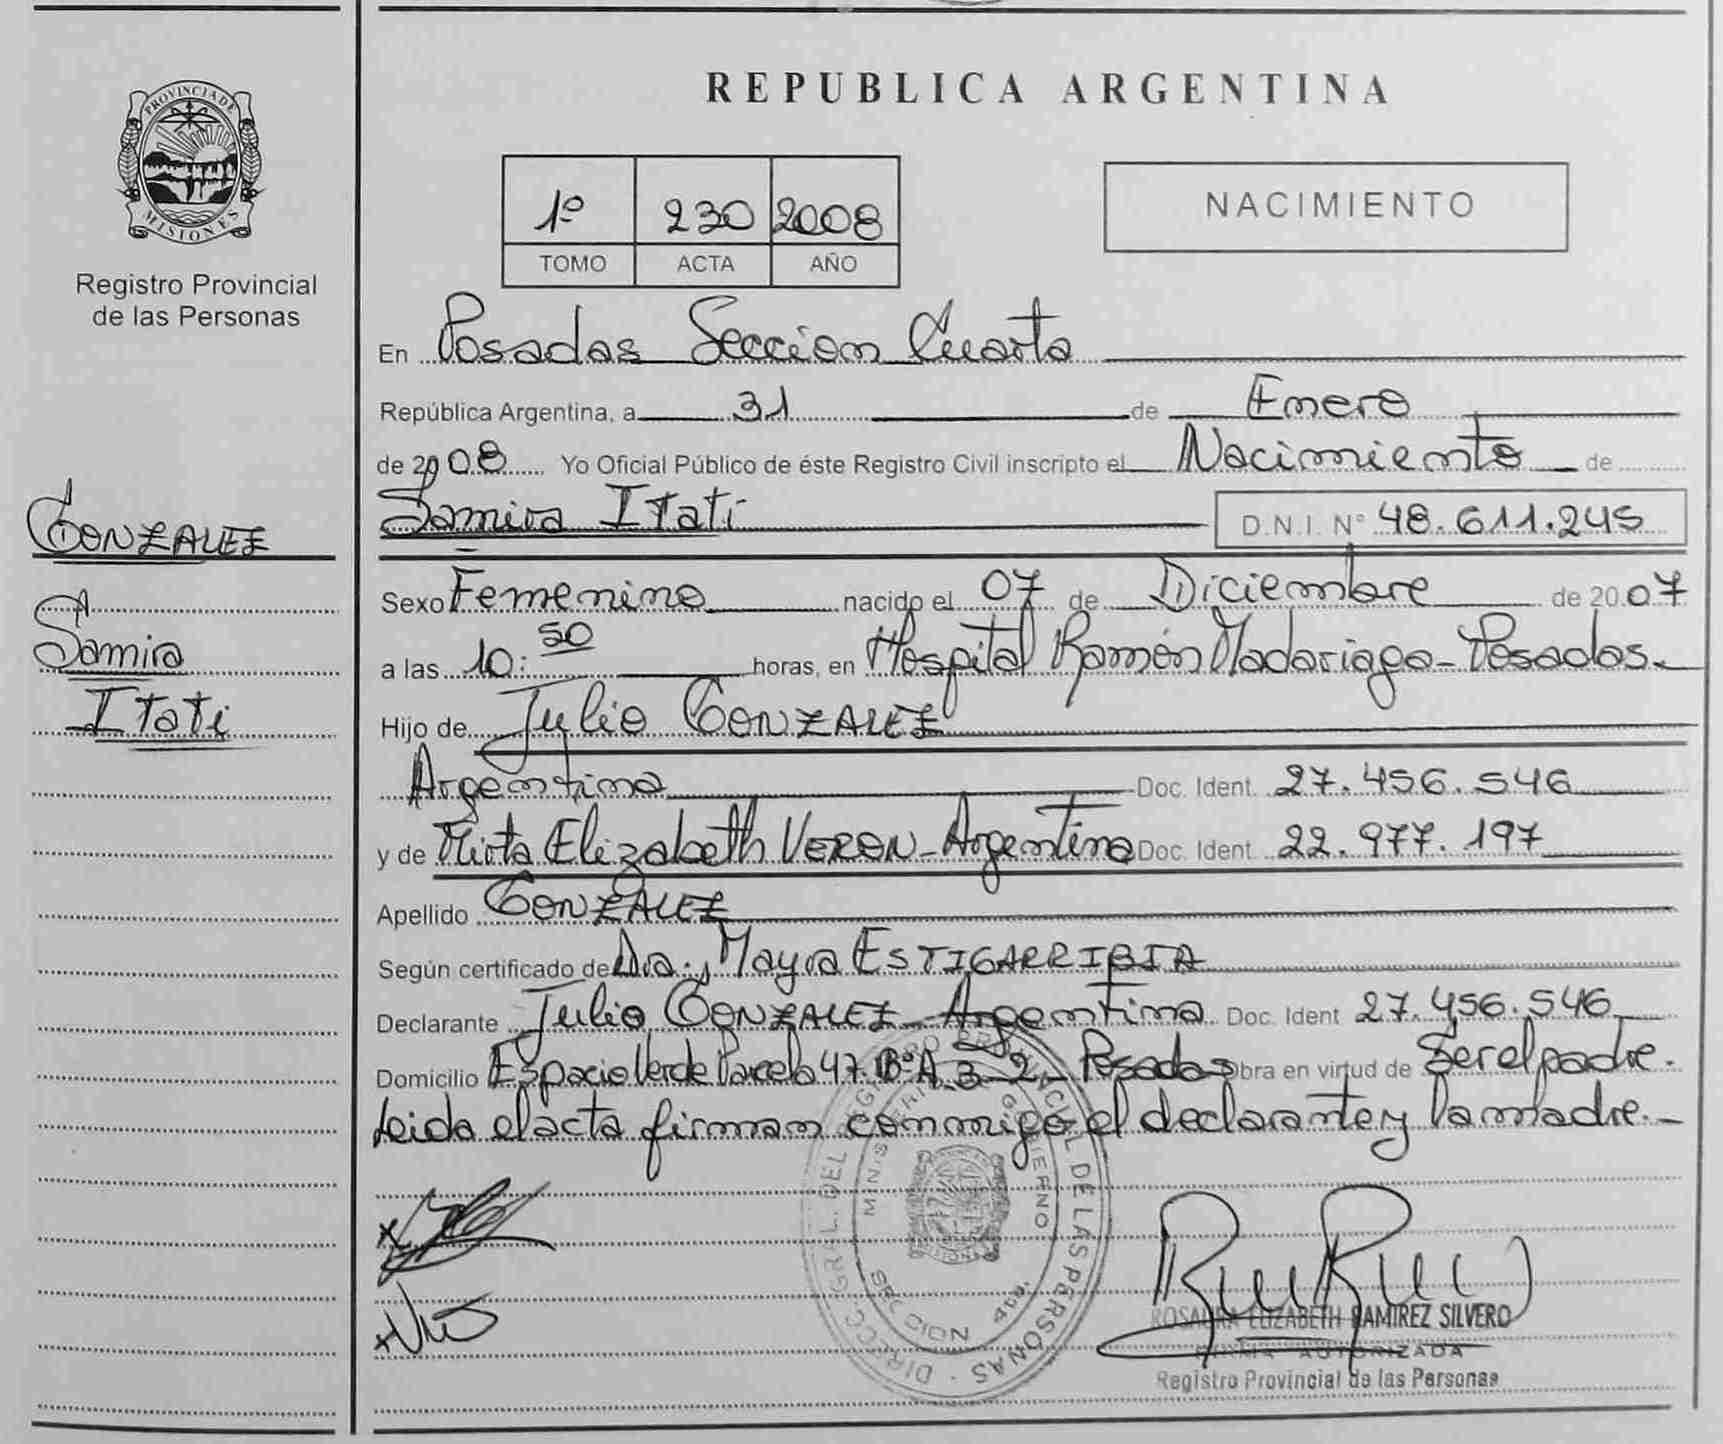 PROVINCIA DE
MISIONES
Registro Provincial
de las Personas
GONZALEZ
Samira
Itati
REPUBLICA ARGENTINA
1º 230 2008
TOMO ACTA AÑO
NACIMIENTO
En Posadas Seccion Cuarta
República Argentina, a 31 de Enero
de 2008 Yo Oficial Público de éste Registro Civil inscripto el Nacimiento de
Samira Itati D.N.I. Nº 48.611.245
Sexo Femenino nacido el 07 de Diciembre de 2007
a las 10:50 horas, en Hospital Ramón Madariaga - Posadas.-
Hijo de Julio GONZALEZ
Argentina Doc. Ident. 27.456.546
y de Mirta Elizabeth VERON - Argentina Doc. Ident. 22.977.197
Apellido GONZALEZ
Según certificado de Dra. Mayra ESTIGARRIBIA
Declarante Julio GONZALEZ - Argentina Doc. Ident 27.456.546
Domicilio Espacio Verde Parcela 47. Bº A. 3-2 - Posadas Obra en virtud de Ser el padre.
Leida el acta firman conmigo el declarante y la madre.-
DIRECC. GRAL. DEL REGISTRO PROVINCIAL DE LAS PERSONAS
MINISTERIO GOBIERNO
SECCION 4ta.
ROSAURA ELIZABETH RAMIREZ SILVERO
FIRMA AUTORIZADA
Registro Provincial de las Personas